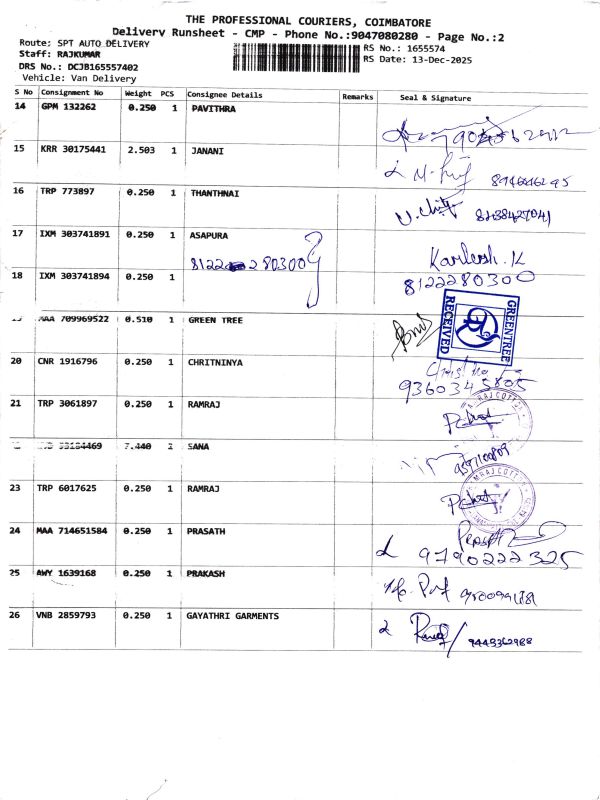 THE PROFESSIONAL COURIERS, COIMBATORE
Delivery Runsheet - CMP - Phone No.:9047080280 - Page No.:2
Route: SPT AUTO DELIVERY
Staff: RAJKUMAR
DRS No.: DCJB165557402
Vehicle: Van Delivery
RS No.: 1655574
RS Date: 13-Dec-2025
S No Consignment No Weight PCS Consignee Details Remarks Seal & Signature
14 GPM 132262 0.250 1 PAVITHRA
15 KRR 30175441 2.503 1 JANANI
8946646295
16 TRP 773897 0.250 1 THANTHNAI
8238427041
17 IXM 303741891 0.250 1 ASAPURA
Karlesh.K
8122280300
18 IXM 303741894 0.250 1
MAA 709969522 0.510 1 GREEN TREE
GREENTREE
RECEIVED
20 CNR 1916796 0.250 1 CHRITNINYA
9360345805
21 TRP 3061897 0.250 1 RAMRAJ
7.440 2 SANA
9597100809
23 TRP 6017625 0.250 1 RAMRAJ
24 MAA 714651584 0.250 1 PRASATH
9790222325
25 AWY 1639168 0.250 1 PRAKASH
26 VNB 2859793 0.250 1 GAYATHRI GARMENTS
9445362988